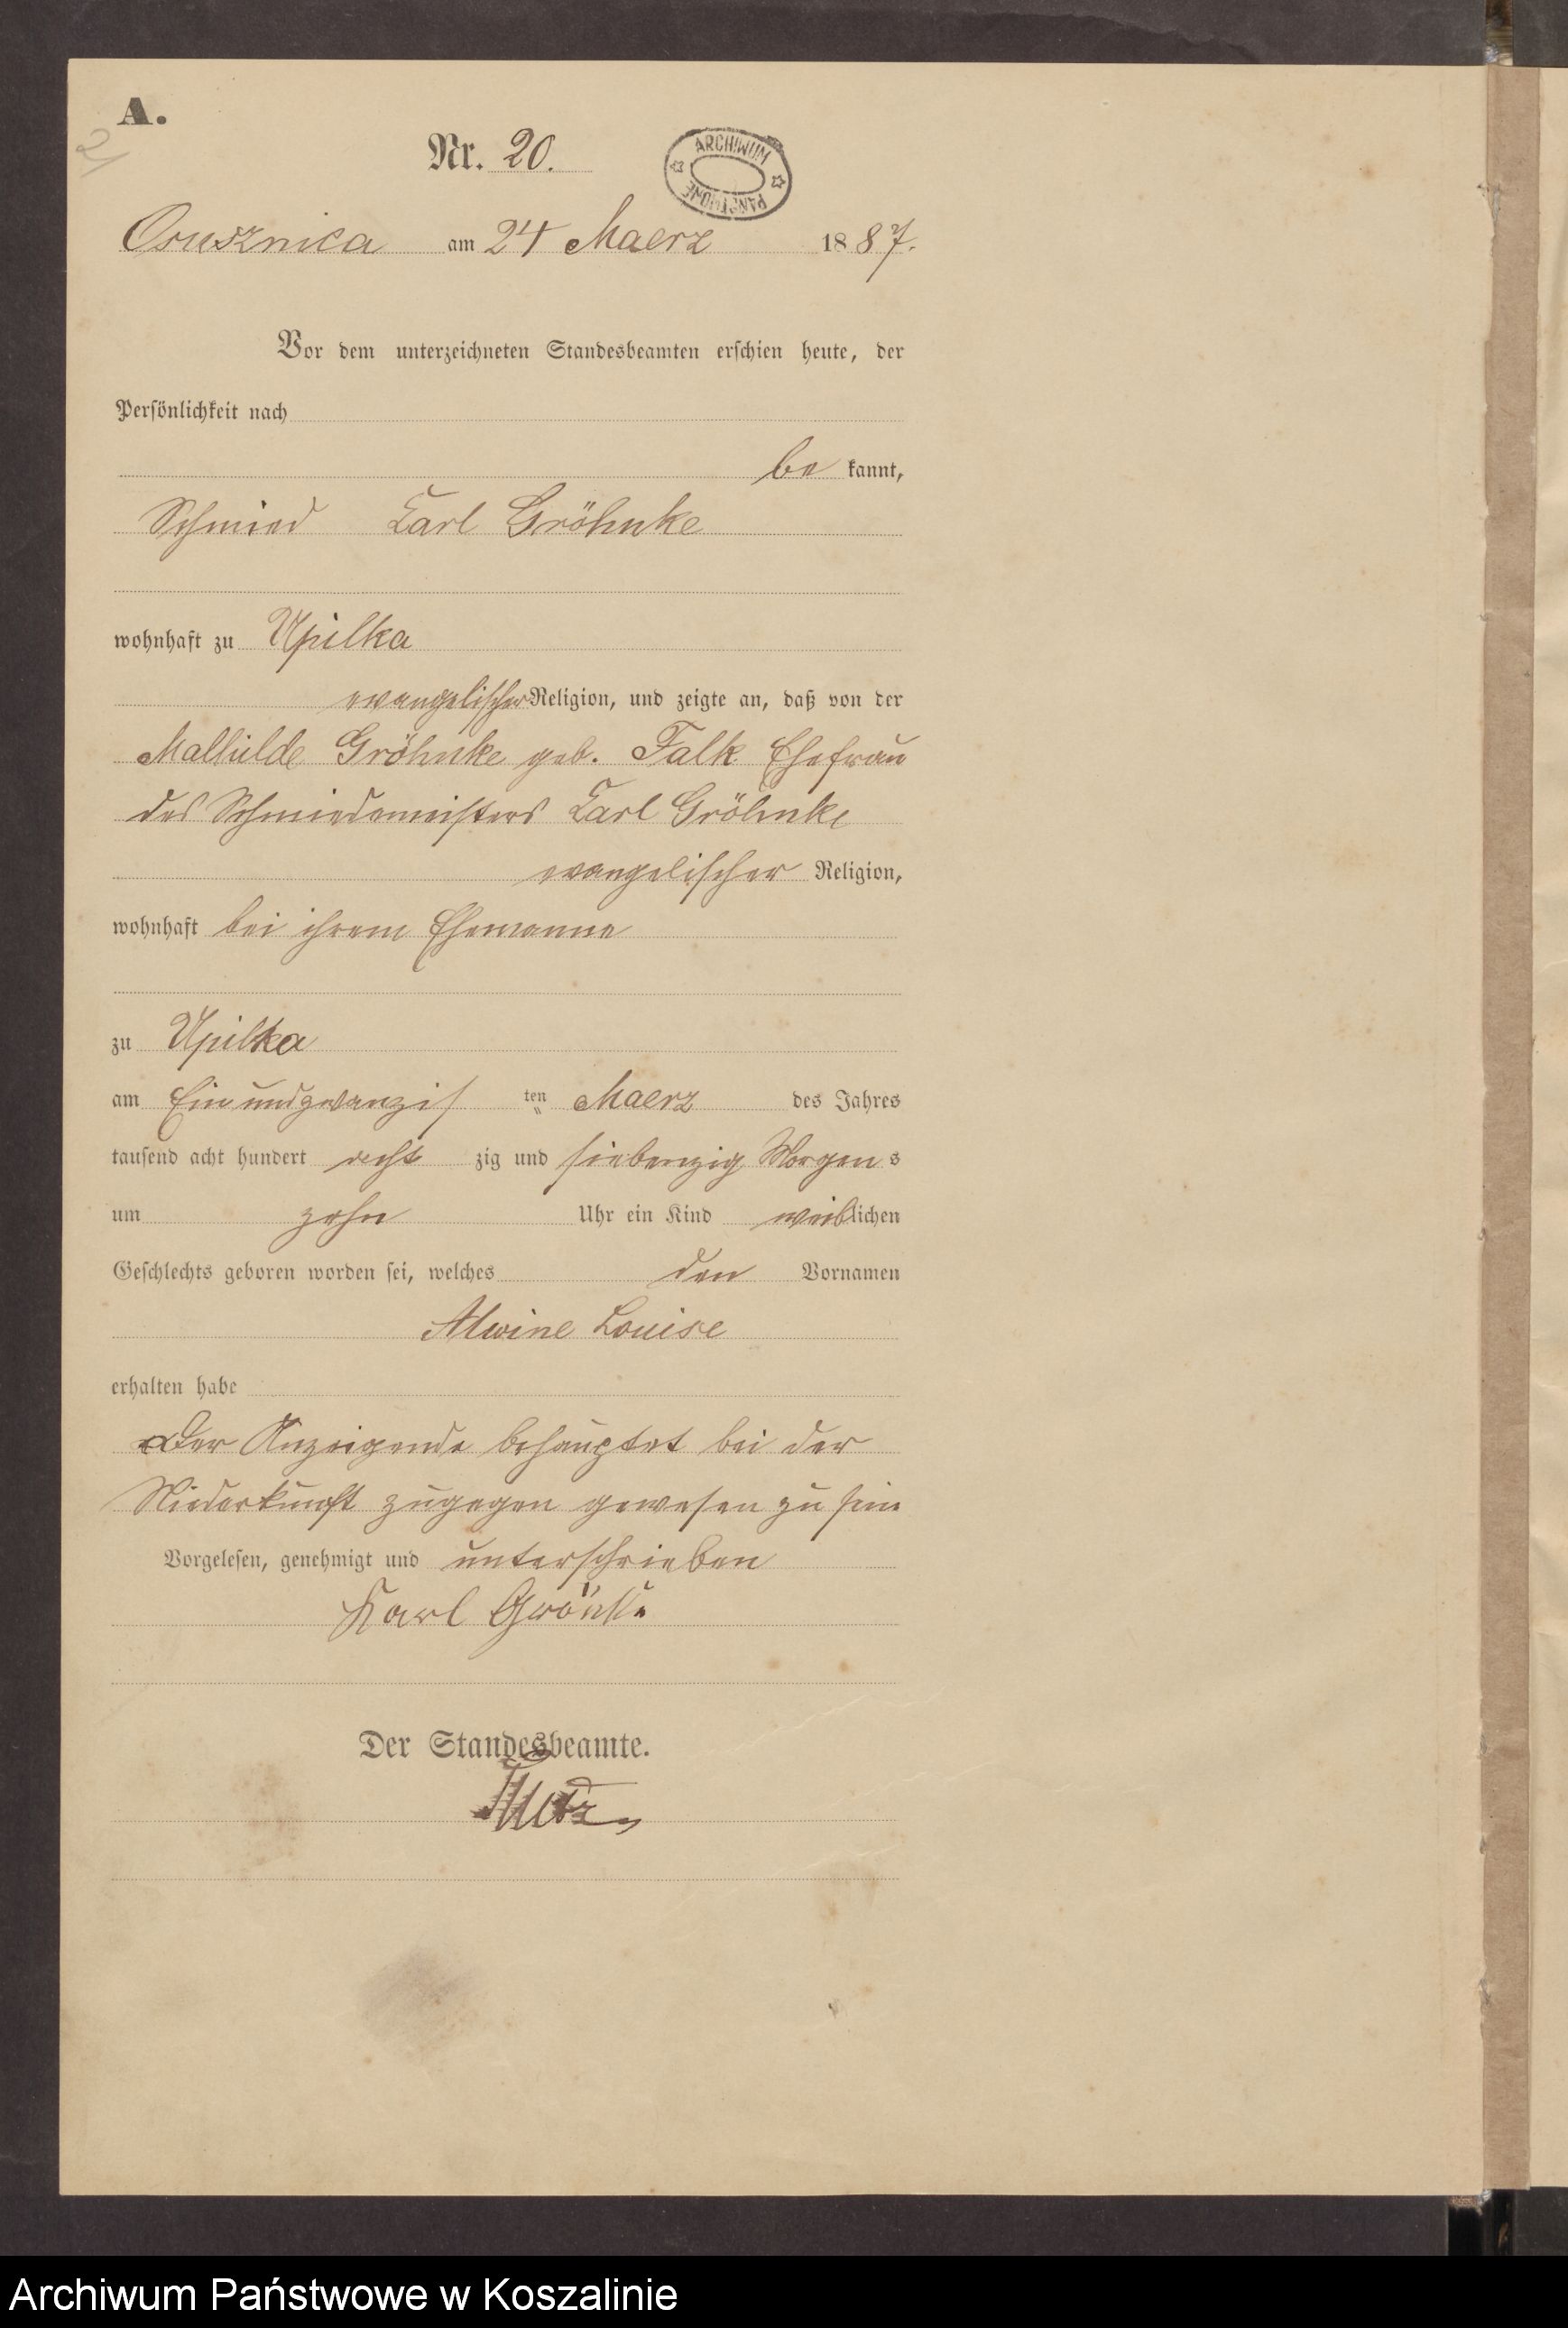 A.
21
Nr. 20.
ARCHIWUM PAŃSTWOWE
Osusznica am 24 Maerz 1887.
Vor dem unterzeichneten Standesbeamten erschien heute, der
Persönlichkeit nach
be kannt,
Schmied Carl Gröhnke
wohnhaft zu Upilka
evangelischer Religion, und zeigte an, daß von der
Mathilde Gröhnke geb. Falk Ehefrau
des Schmiedemeisters Carl Gröhnke
evangelischer Religion,
wohnhaft bei ihrem Ehemanne
zu Upilka
am Ein und zwanzigs ten Maerz des Jahres
tausend acht hundert acht zig und siebenzig Morgen s
um zehn Uhr ein Kind weiblichen
Geschlechts geboren worden sei, welches den Vornamen
Alwine Louise
erhalten habe
Der Anzeigende behauptet bei der
Niederkunft zugegen gewesen zu sein
Vorgelesen, genehmigt und unterschrieben
Karl Grönke
Der Standesbeamte.
Archiwum Państwowe w Koszalinie